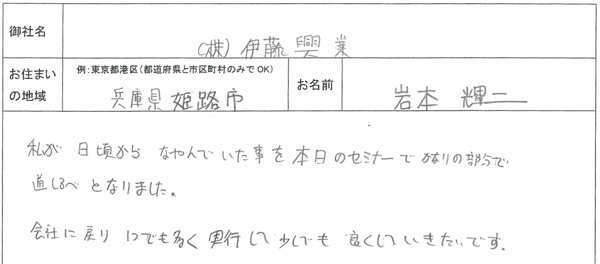 御社名
(株) 伊藤興業
お住まいの地域
例:東京都港区(都道府県と市区町村のみでOK)
兵庫県 姫路市
お名前
岩本 輝二
私が 日頃から なやんでいた事を本日のセミナーで かなりの部分で
道しるべとなりました。
会社に戻り 1つでも多く 実行して少しでも 良くしていきたいです。